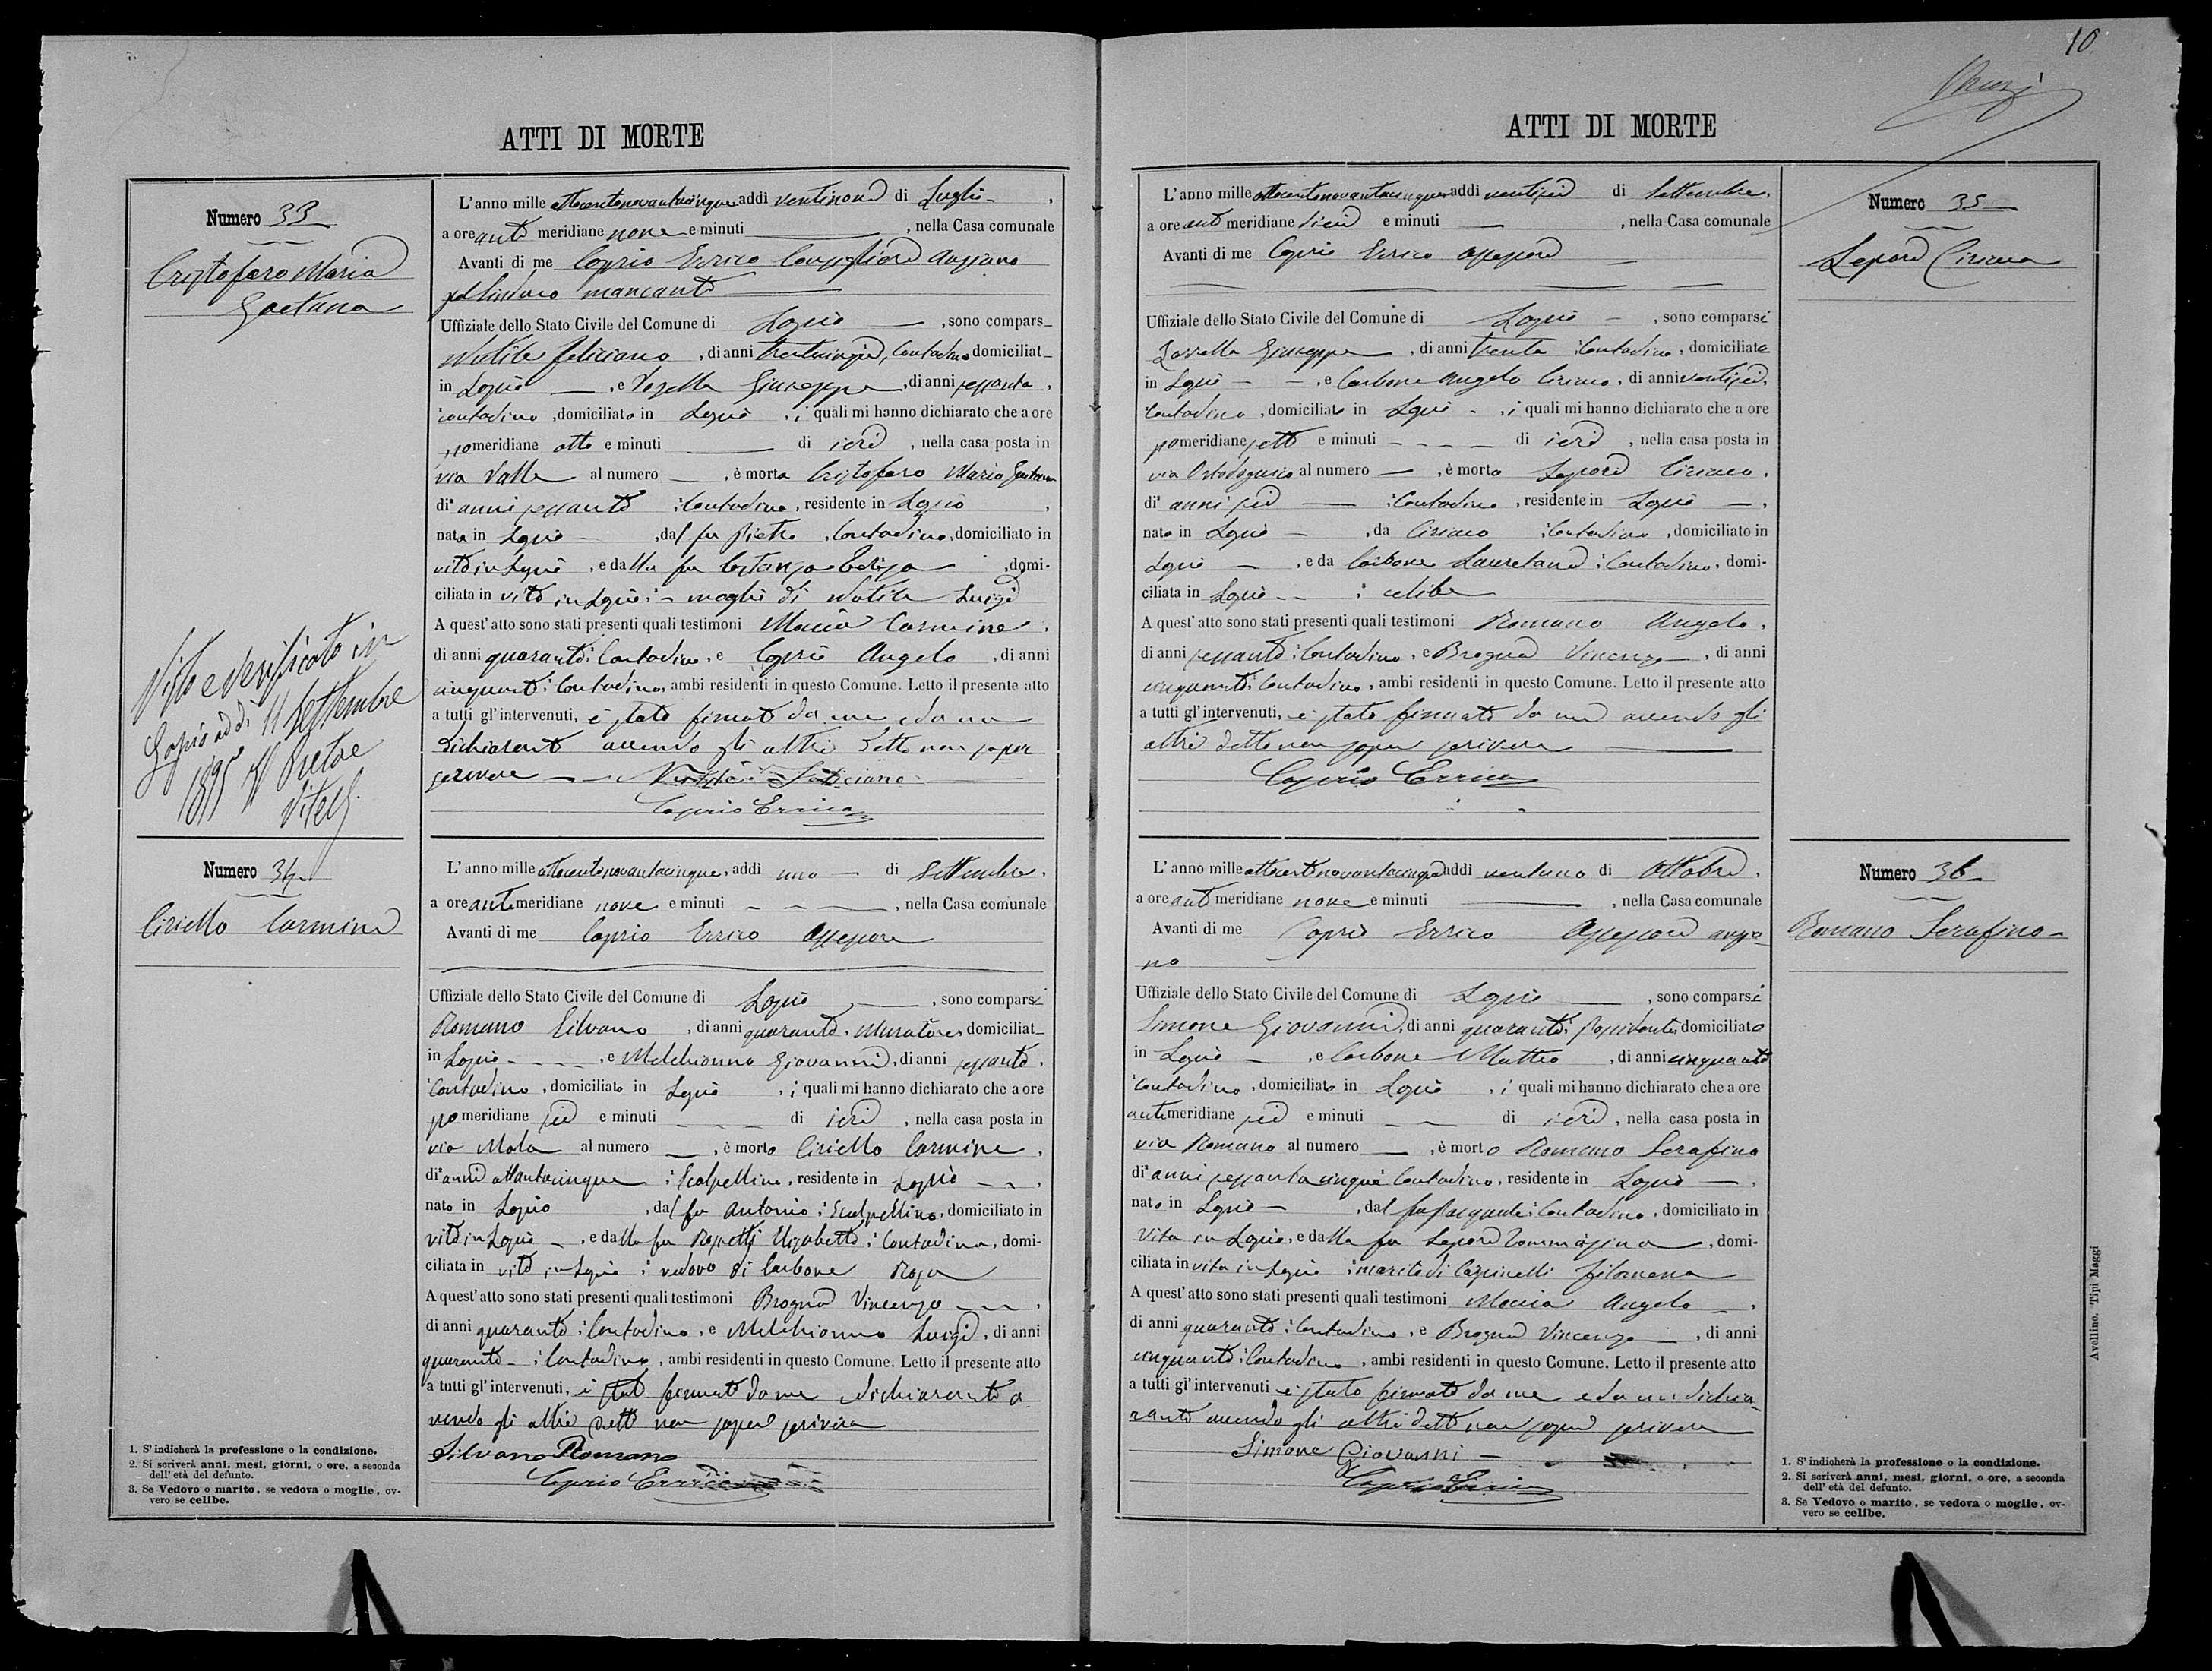 ATTI DI MORTE
Numero 33
Cristofaro Maria
Gaetana
L'anno mille ottocentonovantacinque, addì ventinove di Luglio,
a ore anti meridiane nove e minuti , nella Casa comunale
Avanti di me Caprio Errico Consigliere anziano
pel Sindaco mancante
Uffiziale dello Stato Civile del Comune di Sopio , sono compars
Feliciano , di anni , Contadino domiciliat
in , e Giuseppe , di anni sessanta,
contadino , domiciliato in , i quali mi hanno dichiarato che a ore
po meridiane otto e minuti di ieri , nella casa posta in
via Valle al numero , è morta Cristofaro Maria Gaetana
di anni sessanta : Contadina, residente in
nata in , dal fu Pietro , Contadino, domiciliato in
vita in , e dalla fu , domi-
ciliata in vita in : moglie di Luigi
A quest'atto sono stati presenti quali testimoni Maccia Carmine,
di anni quaranta : Contadino, e Caprio Angelo , di anni
cinquanta : Contadino, ambi residenti in questo Comune. Letto il presente atto
a tutti gl'intervenuti, è stato firmato da me e da un
dichiarante avendo gli altri detto non saper
scrivere Feliciano
Caprio Errico
Visto e verificato in
addì 11 Settembre
1895 Il Pretore
Numero 34
Ciriello Carmine
L'anno mille ottocentonovantacinque, addì uno di Settembre,
a ore anti meridiane nove e minuti , nella Casa comunale
Avanti di me Caprio Errico Assessore
Uffiziale dello Stato Civile del Comune di , sono comparsi
Romano Silvano , di anni quaranta, Muratore, domiciliat
in , e Melchionno Giovanni, di anni sessanta,
Contadino , domiciliato in , i quali mi hanno dichiarato che a ore
po meridiane sei e minuti di ieri , nella casa posta in
via Mola al numero , è morto Ciriello Carmine,
di anni ottantacinque : Scalpellino, residente in
nato in , dal fu Antonio : Scalpellino, domiciliato in
vita in , e dalla fu Elisabetta : Contadina, domi-
ciliata in vita in : vedovo di Carbone Rosa
A quest'atto sono stati presenti quali testimoni Brogna Vincenzo
di anni quaranta : Contadino, e Melchionno Luigi, di anni
quaranta : Contadino, ambi residenti in questo Comune. Letto il presente atto
a tutti gl'intervenuti, è stato firmato da me e dichiarante a
vendo gli altri detto non saper scrivere
Silvano Romano
Caprio Errico
1. S'indicherà la professione o la condizione.
2. Si scriverà anni, mesi, giorni, o ore, a seconda
dell'età del defunto.
3. Se Vedovo o marito, se vedova o moglie, ov-
vero se celibe.
10
ATTI DI MORTE
Numero 35
Lepore Ciriaco
L'anno mille ottocentonovantacinque addì ventisei di Settembre,
a ore anti meridiane dieci e minuti , nella Casa comunale
Avanti di me Caprio Errico Assessore
Uffiziale dello Stato Civile del Comune di , sono comparsi
Giuseppe , di anni trenta : Contadino , domiciliato
in , e Carbone Angelo Ciriaco, di anni ventisei,
Contadino , domiciliato in , i quali mi hanno dichiarato che a ore
po meridiane sette e minuti di ieri , nella casa posta in
via al numero , è morto Lepore Ciriaco,
di anni sei : Contadino , residente in
nato in , da Ciriaco : Contadino , domiciliato in
, e da Carbone Lauretana : Contadina, domi-
ciliata in : celibe
A quest'atto sono stati presenti quali testimoni Romano Angelo,
di anni sessanta : Contadino, e Brogna Vincenzo , di anni
cinquanta : Contadino, ambi residenti in questo Comune. Letto il presente atto
a tutti gl'intervenuti, è stato firmato da me avendo gli
altri detto non saper scrivere
Caprio Errico
Numero 36
Romano Serafino
L'anno mille ottocentonovantacinque addì ventuno di Ottobre,
a ore ant meridiane nove e minuti , nella Casa comunale
Avanti di me Caprio Errico Assessore anzia
no
Uffiziale dello Stato Civile del Comune di , sono comparsi
Simone Giovanni, di anni quaranta : Possidente, domiciliato
in , e Carbone Matteo , di anni cinquanta
Contadino, domiciliato in , i quali mi hanno dichiarato che a ore
anti meridiane sei e minuti di ieri , nella casa posta in
via Romano al numero , è morto Romano Serafino
di anni sessantacinque Contadino, residente in
nato in , dal fu Pasquale : Contadino, domiciliato in
vita in , e dalla fu Lepore Tommasina , domi-
ciliata in vita in : marito di Capinelli Filomena
A quest'atto sono stati presenti quali testimoni Maccia Angelo
di anni quaranta : Contadino, e Brogna Vincenzo , di anni
cinquanta : Contadino, ambi residenti in questo Comune. Letto il presente atto
a tutti gl'intervenuti è stato firmato da me e da un dichia
rante avendo gli altri detto non saper scrivere
Simone Giovanni
Caprio Errico
1. S'indicherà la professione o la condizione.
2. Si scriverà anni, mesi, giorni, o ore, a seconda
dell'età del defunto.
3. Se Vedovo o marito, se vedova o moglie, ov-
vero se celibe.
Avellino, Tipi Maggi